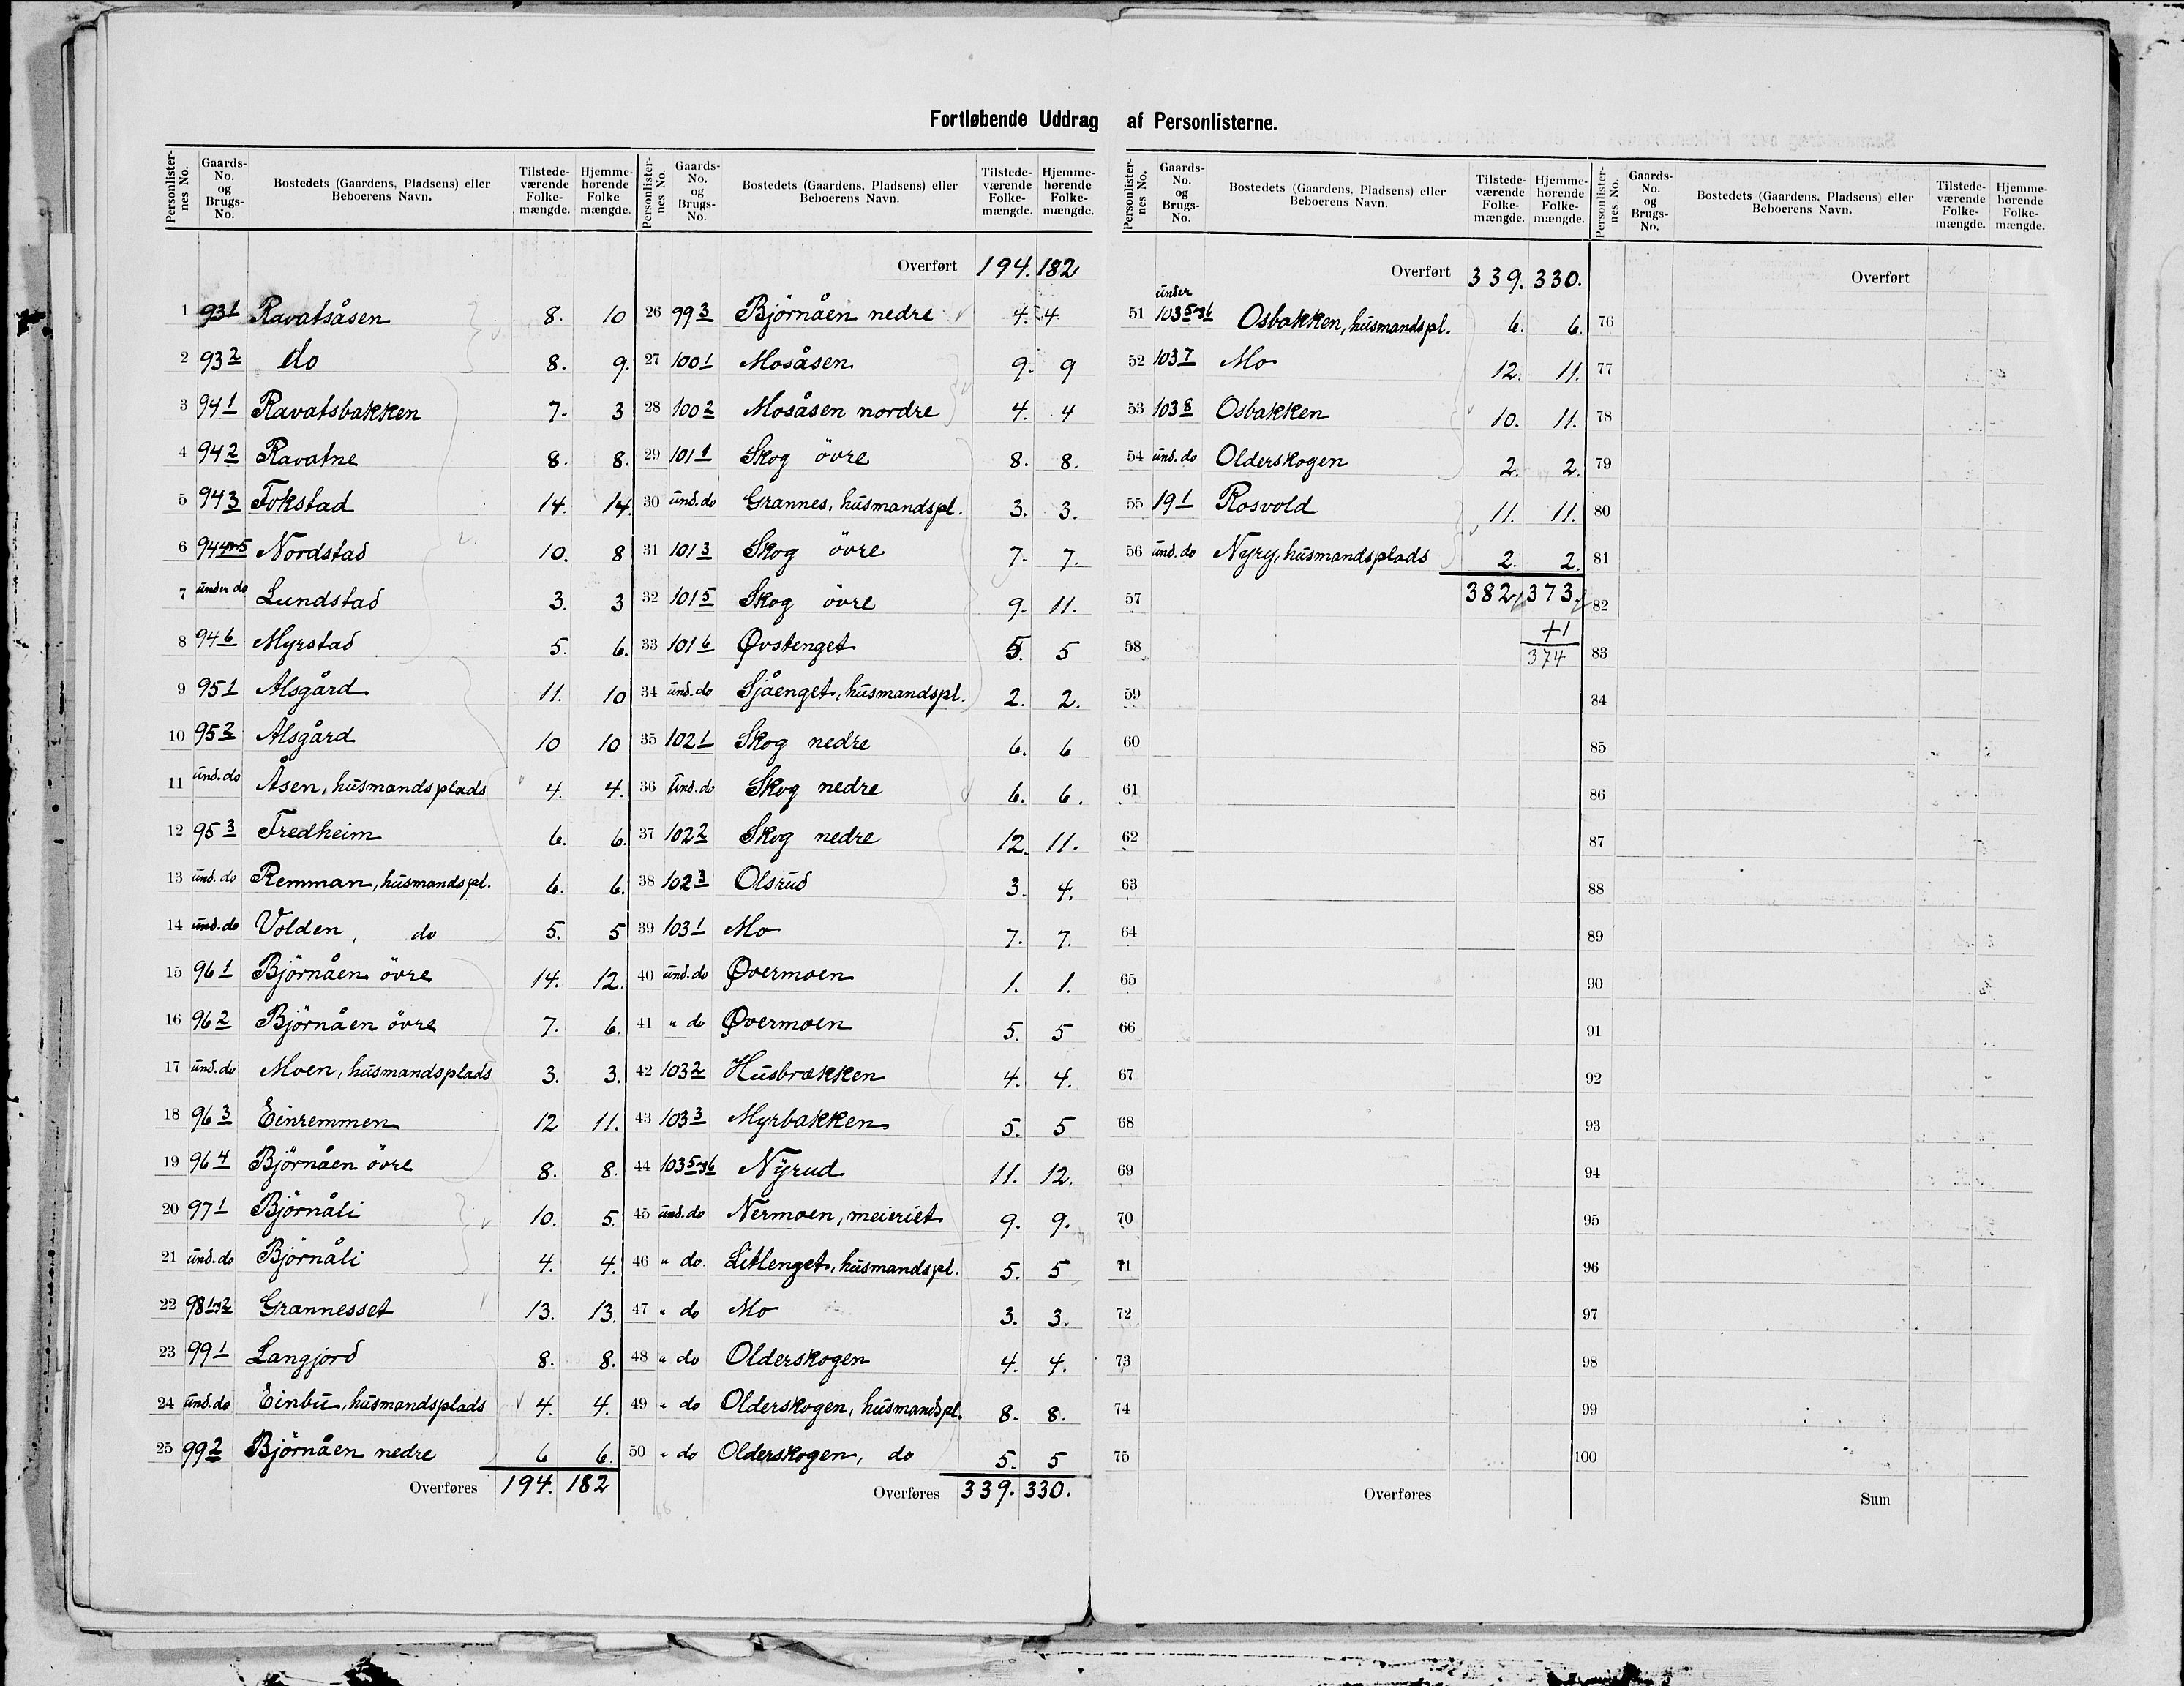 Fortløbende Uddrag af Personlisterne.
Personlister- nes No. Gaards- No. og Brugs- No. Bostedets (Gaardens, Pladsens) eller Beboerens Navn. Tilstede- værende Folke- mængde. Hjemme- hørende Folke mængde.
1 93 1 Ravatsåsen 8. 10
2 93 2 do 8. 9.
3 94 1 Ravatsbakken 7. 3
4 94 2 Ravatne 8. 8.
5 94 3 Fokstad 14. 14.
6 94 4og5 Nordstad 10. 8
7 under do Lundstad 3. 3
8 94 6 Myrstad 5. 6.
9 95 1 Alsgård 11. 10
10 95 2 Alsgård 10 10
11 und. do Åsen, husmandsplads 4. 4.
12 95 3 Fredheim 6. 6.
13 und. do Remman, husmandspl. 6. 6.
14 und. do Volden, do 5. 5
15 96 1 Björnåen övre 14. 12.
16 96 2 Björnåen övre 7. 6.
17 und. do Moen, husmandsplads 3. 3.
18 96 3 Einremmen 12 11.
19 96 4 Björnåen övre 8. 8.
20 97 1 Björnåli 10. 5.
21 und. do Björnåli 4. 4.
22 98 1og2 Grannesset 13. 13.
23 99 1 Langjord 8. 8.
24 und. do Einbu, husmandsplads 4. 4.
25 99 2 Björnåen nedre 6 6.
Overføres 194. 182
Personlister- nes No. Gaards- No. og Brugs- No. Bostedets (Gaardens, Pladsens) eller Beboerens Navn. Tilstede- værende Folke- mængde. Hjemme- hørende Folke- mængde.
Overført 194. 182
26 99 3 Björnåen nedre 4. 4
27 100 1 Mosåsen 9. 9
28 100 2 Mosåsen nordre 4. 4
29 101 1 Skog övre 8. 8.
30 und. do Grannes, husmandspl. 3. 3.
31 101 3 Skog övre 7. 7.
32 101 5 Skog övre 9. 11.
33 101 6 Øvstenget 5. 5
34 und. do Sjåenget, husmandspl. 2. 2.
35 102 1 Skog nedre 6. 6
36 und. do Skog nedre 6. 6.
37 102 2 Skog nedre 12. 11.
38 102 3 Olsrud 3. 4.
39 103 1 Mo 7. 7.
40 und. do Øvermoen 1. 1.
41 " do Øvermoen 5. 5
42 103 2 Husbrækken 4. 4.
43 103 3 Myrbakken 5. 5
44 103 5og6 Nyrud 11. 12.
45 und. do Nermoen, meieriet 9. 9.
46 " do. Litlenget, husmandspl. 5. 5
47 " do Mo 3. 3.
48 " do Olderskogen 4. 4.
49 " do Olderskogen, husmandspl. 8. 8.
50 " do Olderskogen, do 5. 5
Overføres 339. 330.
Personlister- nes No. Gaards- No. og Brugs- No. Bostedets (Gaardens, Pladsens) eller Beboerens Navn. Tilstede- værende Folke- mængde. Hjemme- hørende Folke- mængde.
Overført 339. 330.
51 under 103 5og6 Osbakken, husmandspl. 6. 6.
52 103 7 Mo 12. 11.
53 103 8 Osbakken 10. 11.
54 und. do Olderskogen 2. 2.
55 19 1 Rosvold 11. 11.
56 und. do Nyry, husmandsplads 2. 2.
57 382. 373.
58 +1
374
59
60
61
62
63
64
65
66
67
68
69
70
71
72
73
74
75
Overføres
Personlister- nes No. Gaards- No. og Brugs- No. Bostedets (Gaardens, Pladsens) eller Beboerens Navn. Tilstede- værende Folke- mængde. Hjemme- hørende Folke- mængde.
Overført
76
77
78
79
80
81
82
83
84
85
86
87
88
89
90
91
92
93
94
95
96
97
98
99
100
Sum